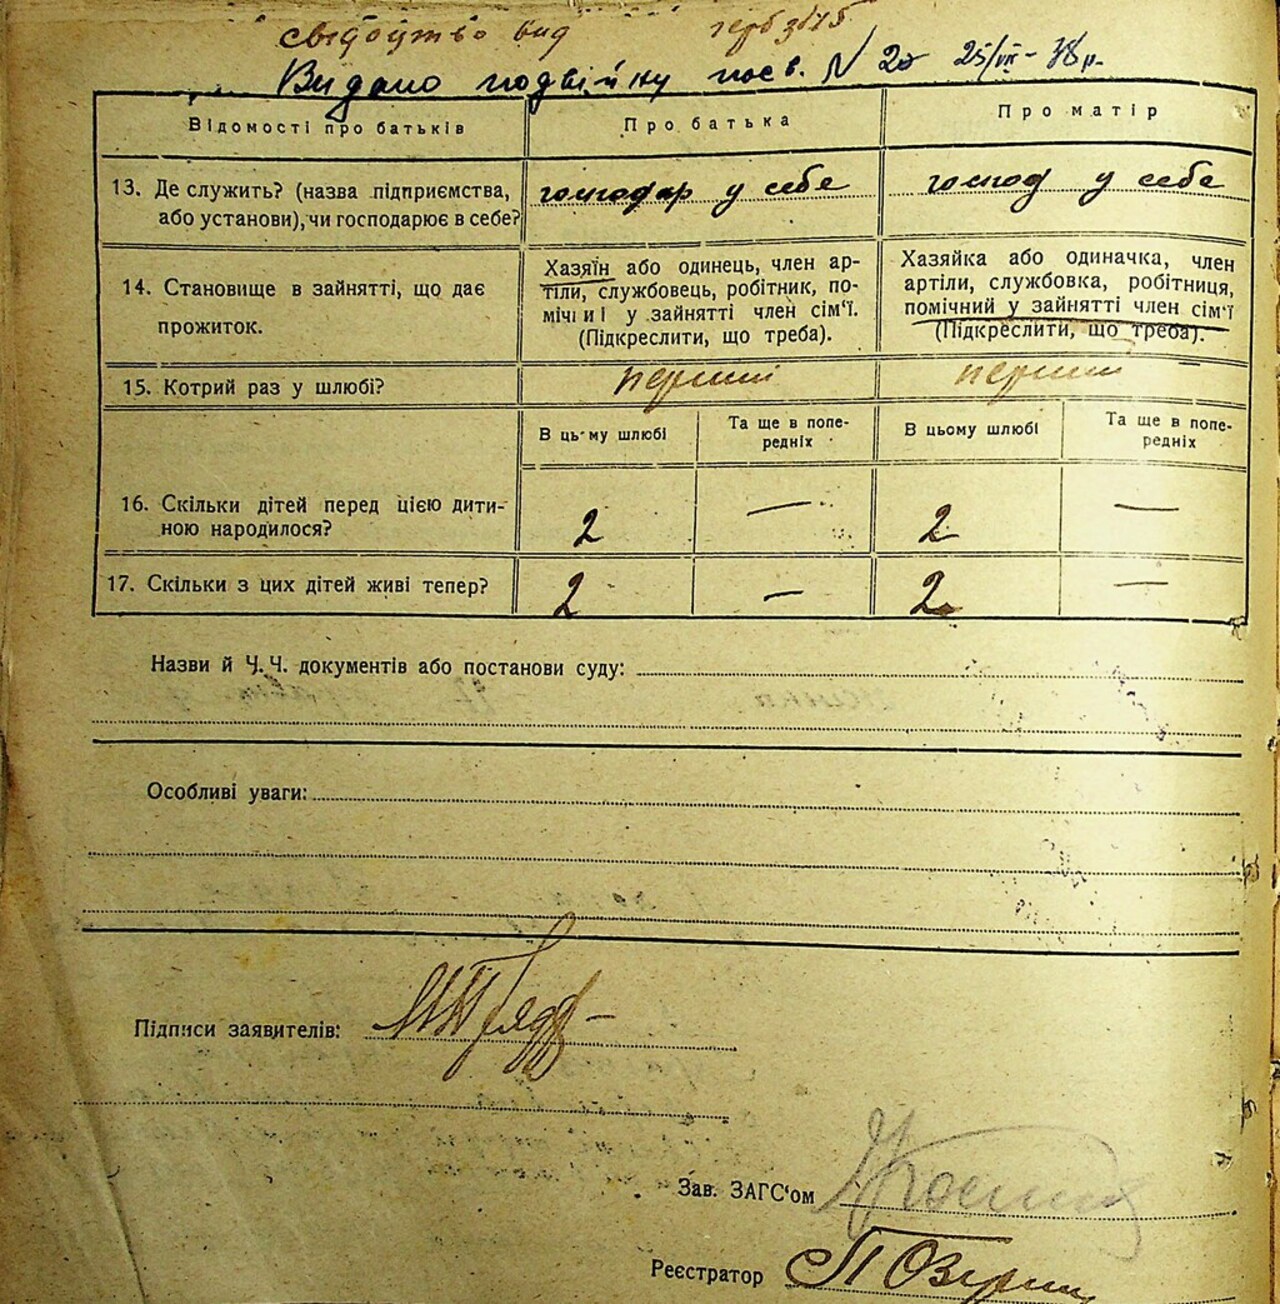 свідоцтво вид
Видано подвійку посв. N 20 25/VII - 38 р.
Відомості про батьків
Про батька
Про матір
13. Де служить? (назва підприємства,
або установи), чи господарює в себе?
господар у себе
господ у себе
14. Становище в зайнятті, що дає
прожиток.
Хазяїн або одинець, член ар-
тіли, службовець, робітник, по-
мічниі у зайнятті член сім'ї.
(Підкреслити, що треба).
Хазяйка або одиначка, член
артіли, службовка, робітниця,
помічний у зайнятті член сім'ї
(Підкреслити, що треба).
15. Котрий раз у шлюбі?
перший
перший
В цьому шлюбі
Та ще в попе-
редніх
В цьому шлюбі
Та ще в попе-
редніх
16. Скільки дітей перед цією дити-
ною народилося?
2 — 2 —
17. Скільки з цих дітей живі тепер?
2 — 2 —
Назви й Ч. Ч. документів або постанови суду:
Особливі уваги:
Підписи заявителів:
Зав. ЗАГС'ом
Реєстратор